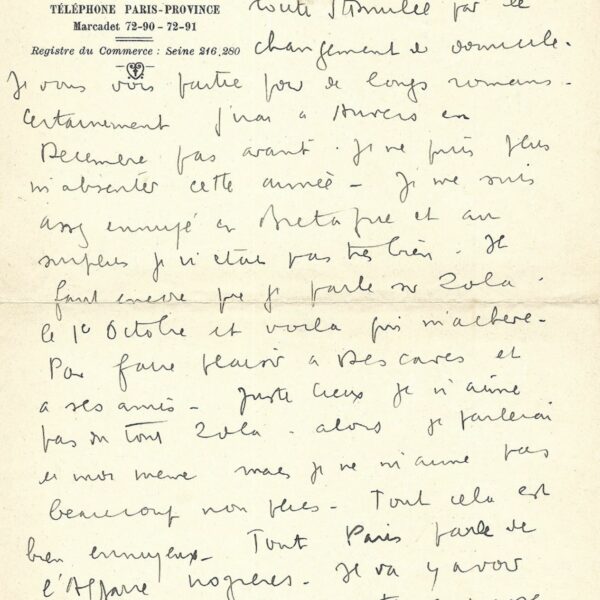 TÉLÉPHONE PARIS-PROVINCE
Marcadet 72-90 - 72-91
Registre du Commerce : Seine 216.280
toute stimulée par le
changement de domicile.
Je vous vois partie pour de longs romans.
Certainement j'irai à Anvers en
Décembre pas avant. Je ne puis plus
m'absenter cette année - Je me suis
assez ennuyé en Bretagne et au
surplus je n'étais pas très bien. Il
faut encore que je parle sur Zola
le 1er Octobre et voilà qui m'achève.
Pour faire plaisir à Descaves et
à ses amis - Juste Cieux je n'aime
pas du tout Zola - alors je parlerai
de moi même mais je ne m'aime pas
beaucoup non plus - Tout cela est
bien ennuyeux - Tout Paris parle de
l'Affaire Nozières - Il va y avoir